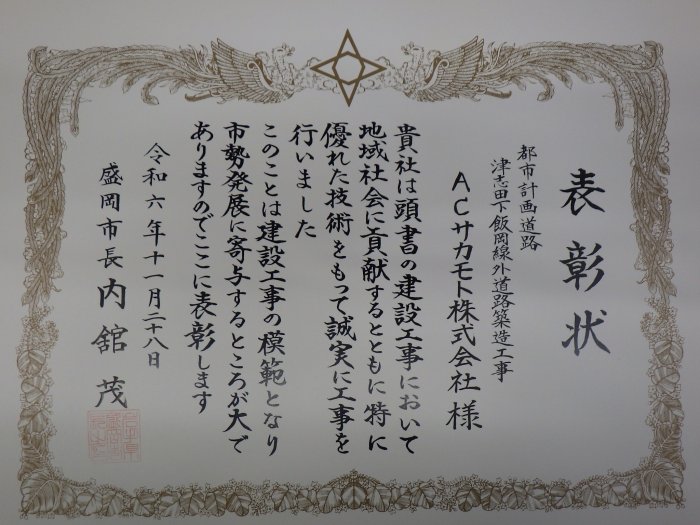 表彰状
都市計画道路
津志田下飯岡線外道路築造工事
ACサカモト株式会社様
貴社は頭書の建設工事において
地域社会に貢献するとともに特に
優れた技術をもって誠実に工事を
行いました
このことは建設工事の模範となり
市勢発展に寄与するところが大で
ありますのでここに表彰します
令和六年十一月二十八日
盛岡市長 内舘茂